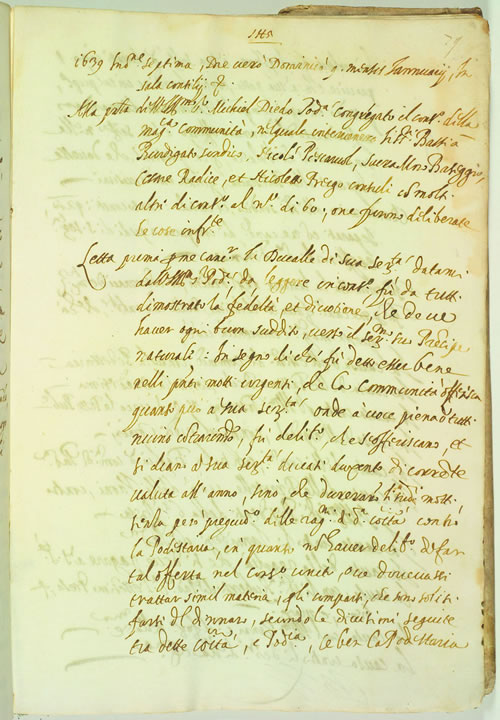 IHS
1639 Ind.e septima, Die vero Dominico 9. mensis Jannuarij, In
sala consilij &.
Alla pnta dell' Ill.mo s.r Michiel Diedo Pod.a Congregato il cons.o della
mag.ca Communità, nel quale intervenero li ss.ri
sindico, Nicolò
Radice, et Nicoletto consuli con molti
altri di cons.o al n.o di 60, ove furono deliberate
le cose infr.te
Letta prima p me canc.r la Ducalle di sua ser.tà datami
dall' Ill.mo s.r Pod.a da leggere in cons.o fù da tutti
dimostrato la fedeltà et divotione, che deve
haver ogni buon suddito, verso il ser.mo suo Prencipe
naturale: In segno di che fù detto esser bene
nelli pnti moti urgenti, che la Communità offerisca
quanto può a sua ser.tà onde a voce piena di tutti
niuno fù delib.o che s'offeriscano, et
si diano a sua ser.tà ducati dugento di corrente
valuta all' anno, sino, che durerano li moti
senza però pregiud.o delle rag.ni di d.a città contro
la Podestaria, in quanto non haver delib.o di far
tal offerta nel corpo unita, ove dovevassi
trattar simil materia, gli comparti, che sono soliti
farsi del dinnaro, secondo le divisioni seguite
tra dette città, e Pod.ria, se ben la Podestaria